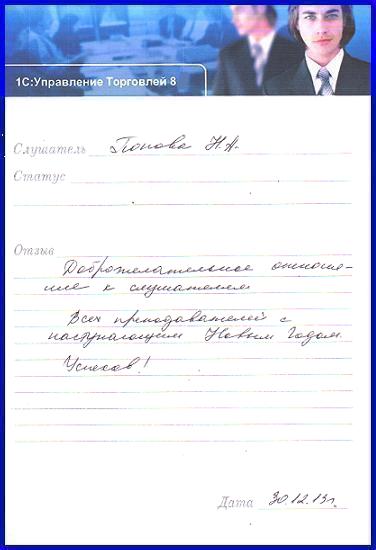 1С:Управление Торговлей 8
Слушатель Попова Н.А.
Статус
Отзыв
Доброжелательное отноше-
ние к слушателям
Всех преподавателей с
наступающим Новым Годом.
Успехов!
Дата 30.12.13г.